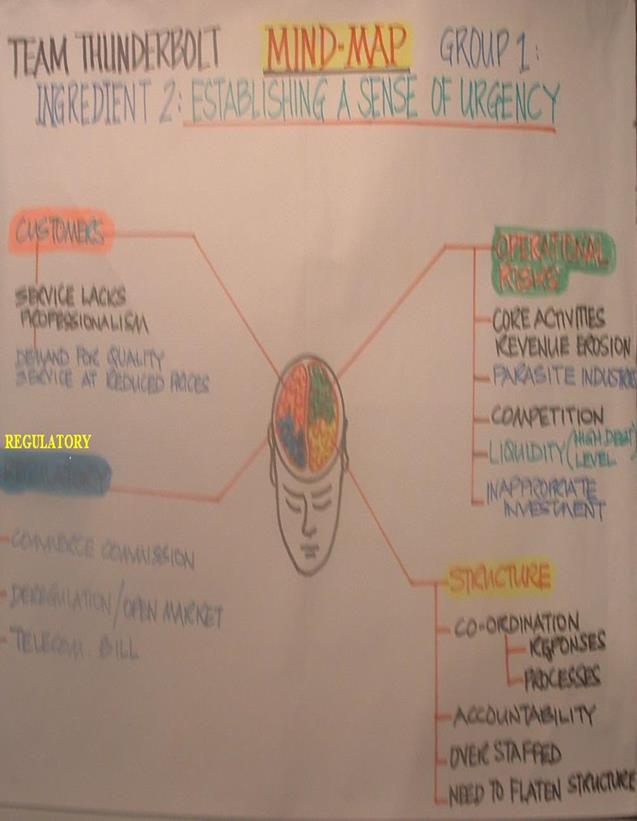 TEAM THUNDERBOLT MIND-MAP GROUP 1:
INGREDIENT 2: ESTABLISHING A SENSE OF URGENCY
CUSTOMERS
SERVICE LACKS
PROFESSIONALISM
DEMAND FOR QUALITY
SERVICE AT REDUCED PRICES
REGULATORY
REGULATORY
COMMERCE COMMISSION
DEREGULATION/OPEN MARKET
TELECOM. BILL
OPERATIONAL
RISKS
CORE ACTIVITIES
REVENUE EROSION
PARASITE INDUSTRIES
COMPETITION
LIQUIDITY (HIGH DEBT
LEVEL)
INAPPROPRIATE
INVESTMENT
STRUCTURE
CO-ORDINATION
REPONSES
PROCESSES
ACCOUNTABILITY
OVER STAFFED
NEED TO FLATEN STRUCTURE